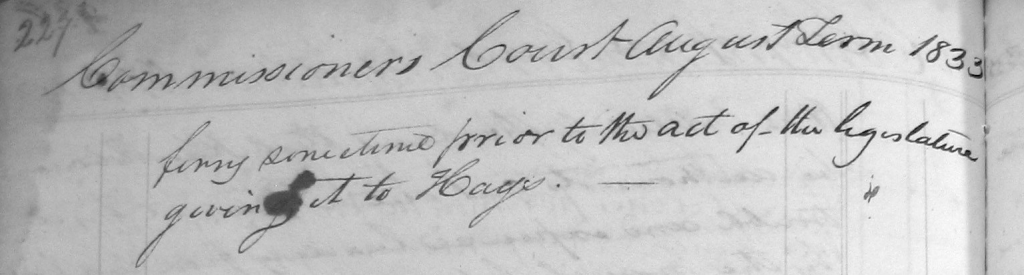 227
Commissioners Court August Term 1833
ferry sometime prior to the act of the legislature
giving it to Hays. —